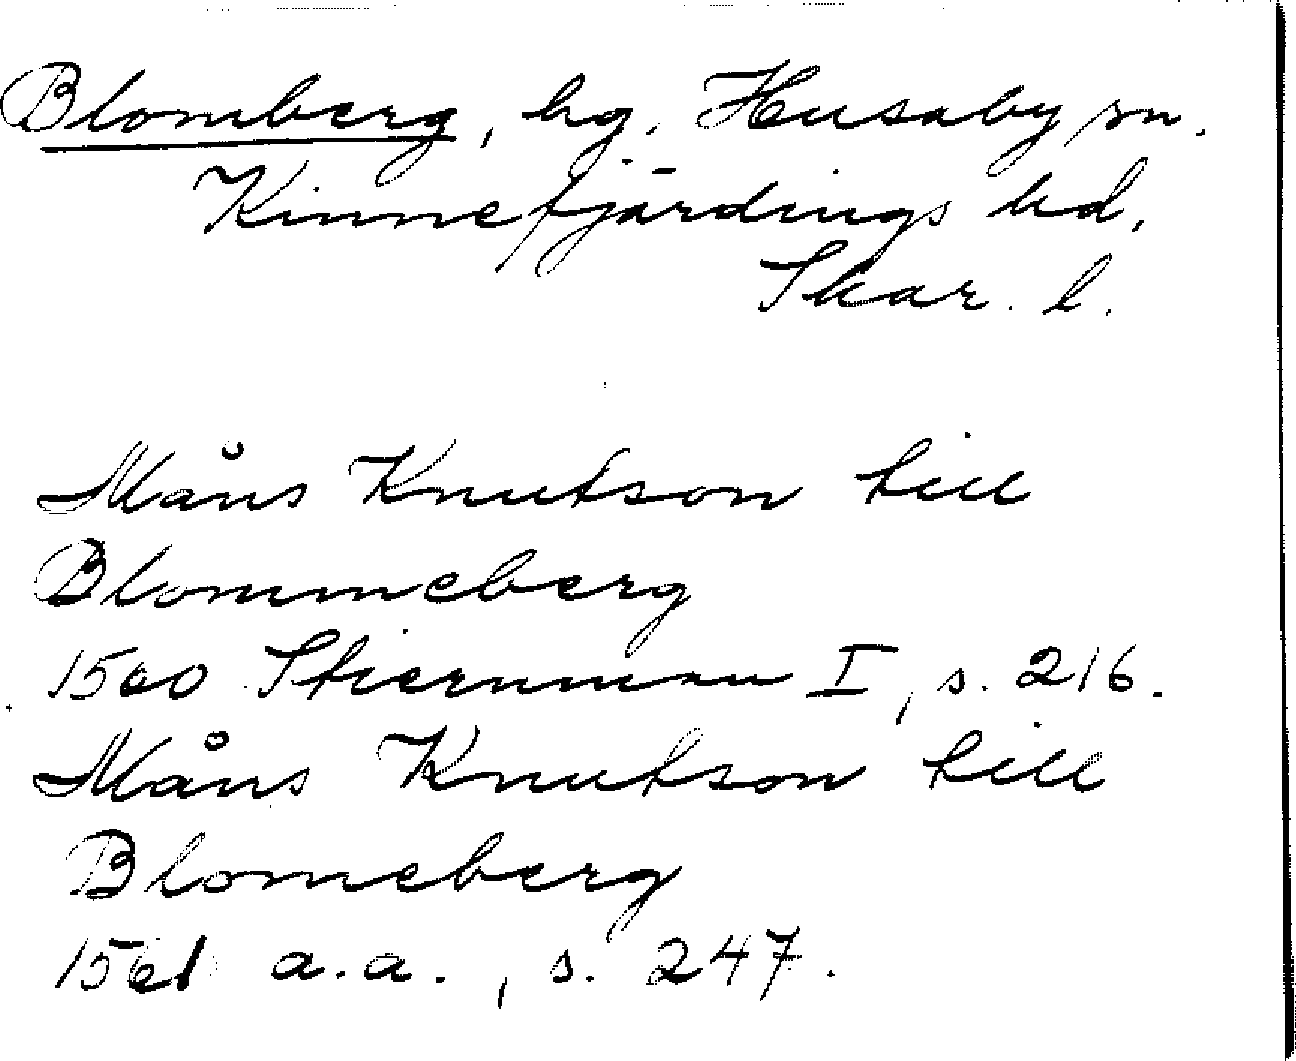 Blomberg, hg. Husaby sn.
Kinnefjärdings hd.
Skar. l.
Måns Knutson till
Blommeberg
1560 Stiernman I, s. 216.
Måns Knutson till
Blomeberg
1561 a.a., s. 247.